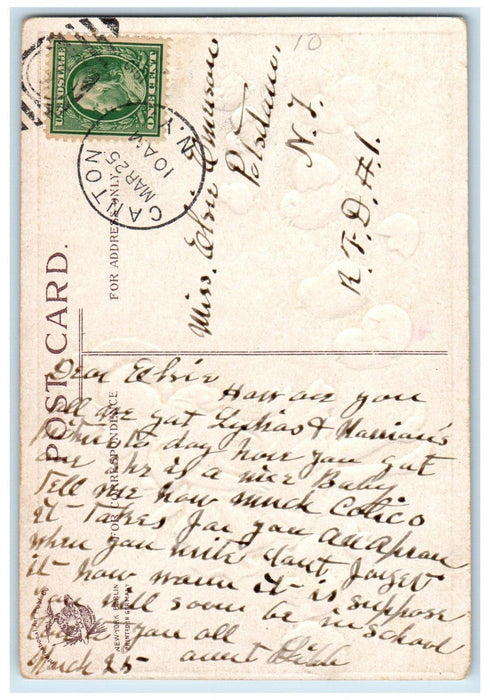 10
U.S. POSTAGE
ONE CENT
CANTON
MAR 25
10 AM
N.Y.
POST CARD.
FOR ADDRESS ONLY.
FOR CORRESPONDENCE
Miss. Elsie
N. Y.
R. F. D. #1.
Dear Elsie
How are you
all we got &
Picture to day have you got
one she is a nice Baby
Tell me how much Calico
it takes for you an apron
when you write dont forget
it how warm it is suppose
you will soon be in school
you all
March 25 aunt
NEW-YORK BERLIN